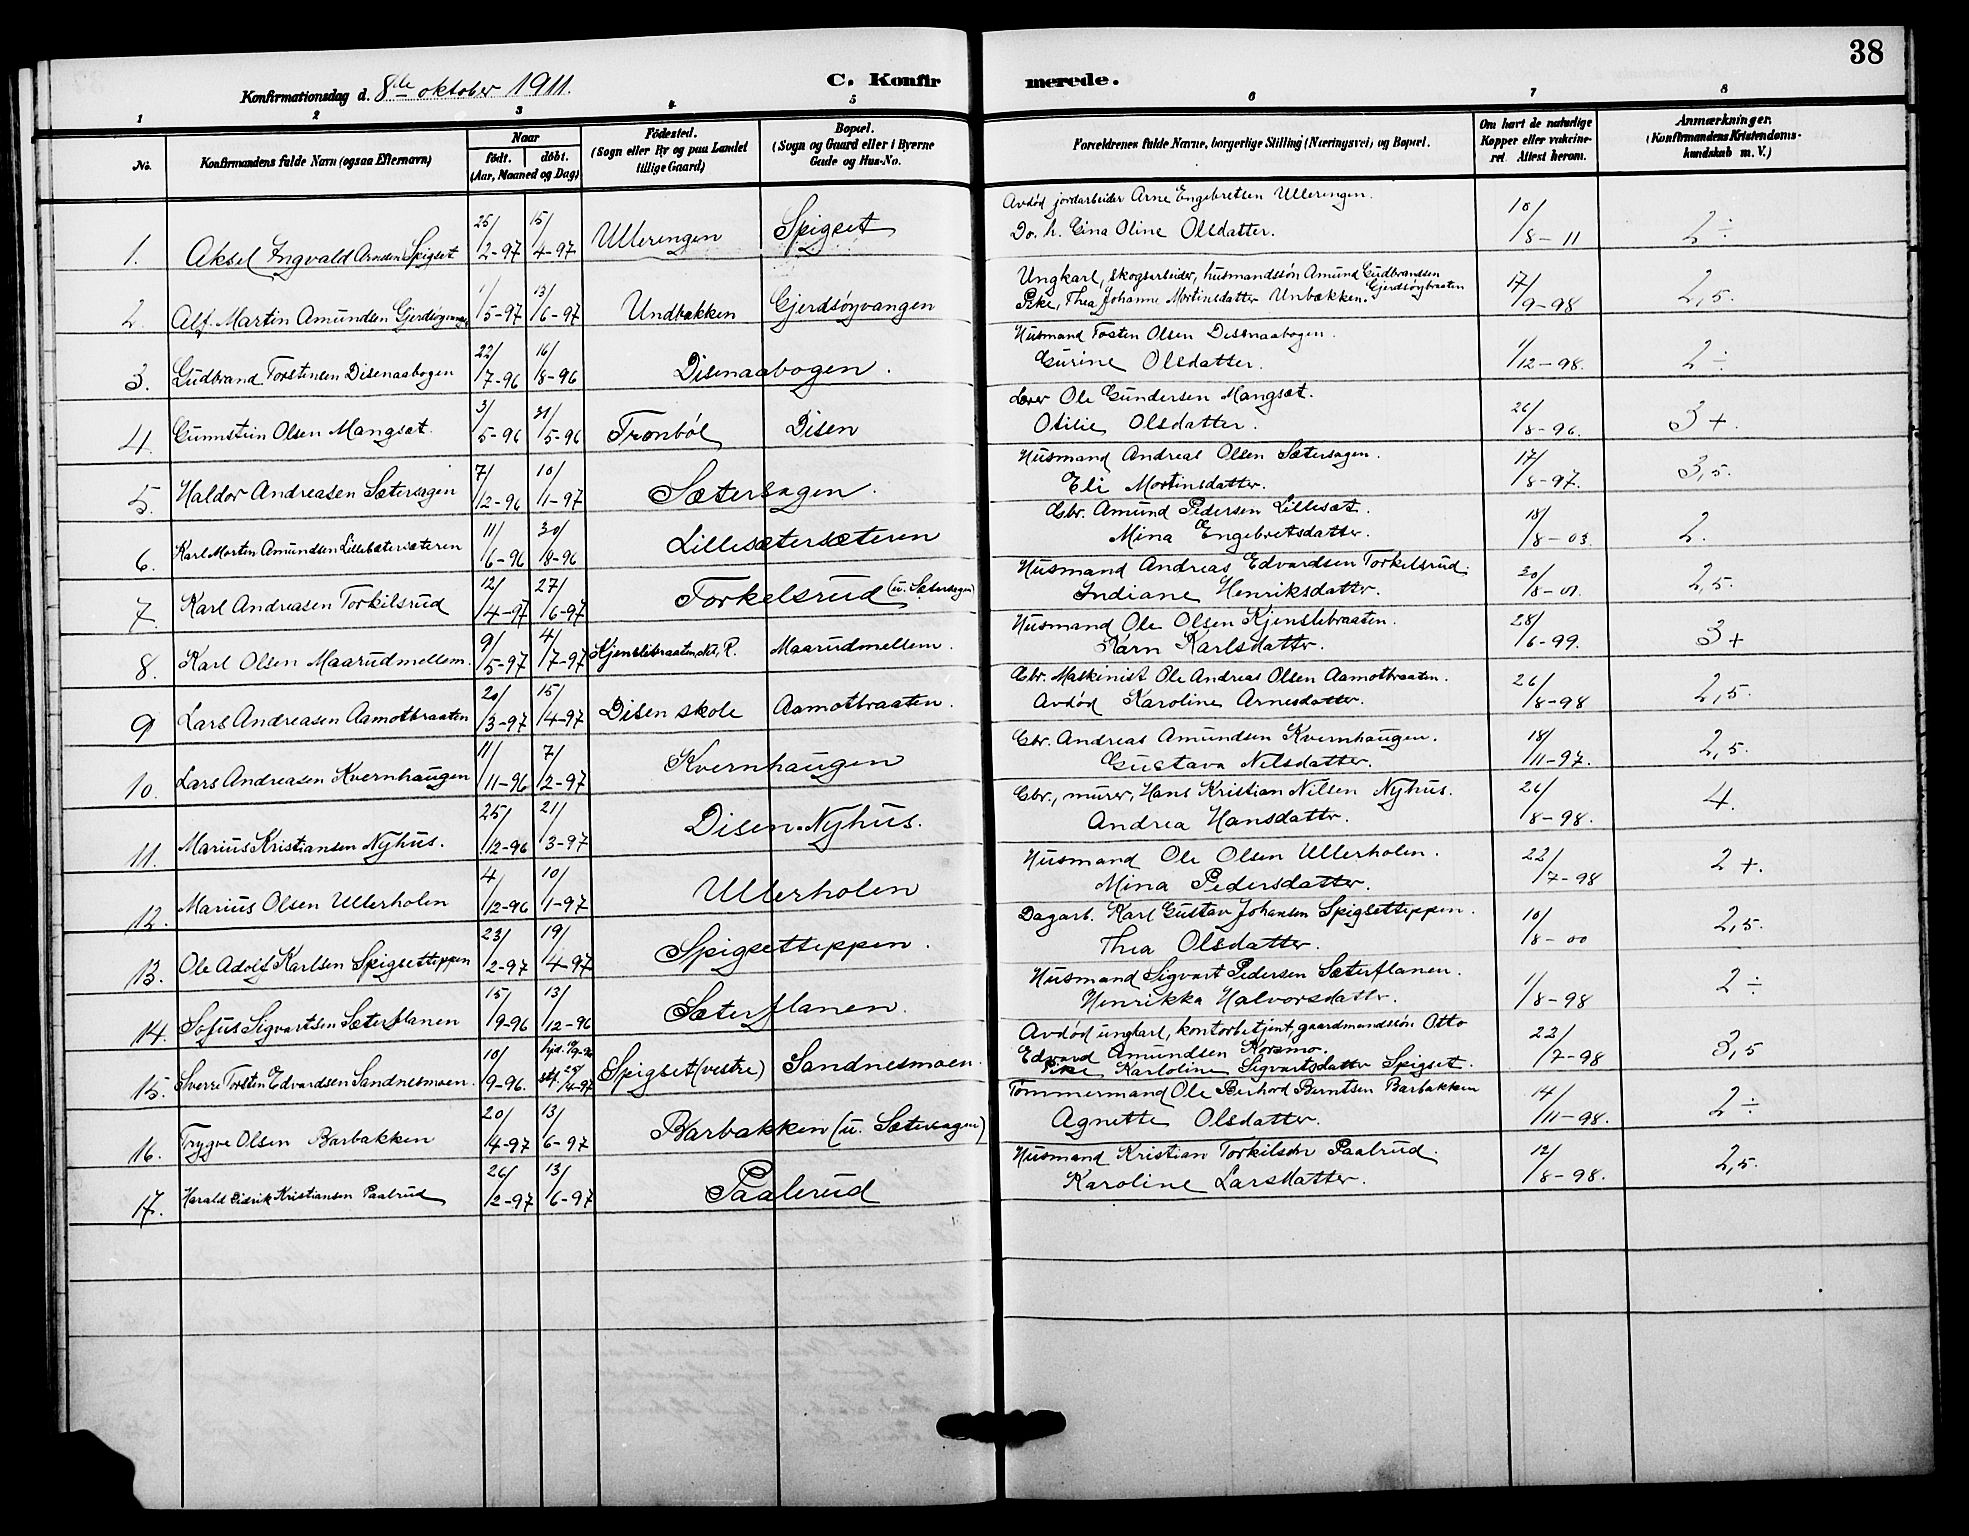 38
Konfirmationsdag d. 8de oktober 1911.
C. Konfir merede.
1 2 3 4 5 6 7 8
No.
Konfirmandens fulde Navn (ogsaa Efternavn)
Naar
født. døbt.
(Aar, Maaned og Dag)
Fødested.
(Sogn eller By og paa Landet
tillige Gaard)
Bopæl.
(Sogn og Gaard eller i Byerne
Gade og Hus-No.
Forældrenes fulde Navne, borgerlige Stilling (Næringsvei) og Bopæl.
Om havt de naturlige
Kopper eller vakcine-
ret. Attest herom.
Anmærkninger.
(Konfirmandens Kristendoms-
kundskab m. V.)
1. Aksel Ingvald Arnesen Spigset 25/2-97 15/4-97 Ullerengen Spigset
Avdød jordarbeider Arne Engebretsen Ullerengen.
Do. h. Gina Oline Olsdatter. 10/8-11 2÷
2 Alf. Martin Amundsen Gjerdsøyvangen 1/5-97 13/6-97 Undbakken Gjerdsøyvangen
Ungkarl, skogsarbeider, husmandssøn Amund Gudbrandsen Gjerdsøybraaten
Pike, Thea Johanne Mortinsdatter Unbækken. 17/9-98 2,5.
3. Gudbrand Torstensen Disenaabogen 22/7-96 16/8-96 Disenaabogen.
Husmand Tosten Olsen Disenaabogen.
Gurine Olsdatter. 1/12-98. 2÷
4. Gunnstein Olsen Mangsæt. 3/5-96 31/5-96 Trønbøl Disen
Lærer Ole Gundersen Mangsæt.
Otilie Olsdatter. 26/8-96. 3+.
5. Haldor Andreasen Sætersagen 7/12-96 10/1-97 Sætersagen.
Husmand Andreas Olsen Sætersagen.
Eli Mortinsdatter. 17/8-97. 3,5.
6. Karl Morten Amundsen Lillesætersæteren 11/6-96 30/8-96 Lillesætersæteren
Gbr. Amund Pedersen Lillesæt.
Mina Engebretsdatter. 18/8-03. 2.
7. Karl Andreasen Torkilsrud 12/4-97 27/6-97 Torkelsrud (u. Sætersagen)
Husmand Andreas Edvardsen Torkelsrud.
Indiane Henriksdatter. 30/8-01. 2,5.
8. Karl Olsen Maarudmellem. 9/5-97 4/7-97 Kjenslebraaten, R. Maarudmellem.
Husmand Ole Olsen Kjenslebraaten.
Karn Karlsdatter. 28/6-99. 3+
9 Lars Andreasen Aamotbraaten 20/3-97 15/4-97 Disen skole Aamotbraaten.
Gbr. Maskinist Ole Andreas Olsen Aamotbraaten.
Avdød Karoline Arnesdatter. 26/8-98 2,5.
10. Lars Andreasen Kvernhaugen 11/11-96 7/2-97 Kvernhaugen
Gbr. Andreas Amundsen Kvernhaugen.
Gustava Nilsdatter. 18/11-97. 2,5.
11. Marius Kristiansen Nyhus. 25/12-96 21/3-97 Disen-Nyhus.
Gbr., murer, Hans Kristian Nilsen Nyhus.
Andrea Hansdatter. 26/8-98. 4.
12. Marius Olsen Ullerholen 4/12-96 10/1-97 Ullerholen
Husmand Ole Olsen Ullerholen.
Mina Pedersdatter. 22/7-98 2+.
13. Ole Adolf Karlsen Spigsetteppen 23/2-97 19/4-97 Spigsetteppen.
Dagarb. Karl Gustav Johansen Spigsetteppen.
Thea Olsdatter. 10/8-00 2,5.
14. Sofus Sigvartsen Sæterflanen 15/9-96 13/12-96 Sæterflanen.
Husmand Sigvart Pedersen Sæterflanen.
Henrikka Halvorsdatter. 1/8-98 2÷
15. Sverre Torstein Edvardsen Sandnesmoen. 10/9-96. 4-97 Spigset (vestre) Sandnesmoen.
Avdød ungkarl, kontorbetjent, gaardmandssøn Otto
Edvard Amundsen Korsmo.
Pike Karoline Sigvartsdatter Spigset. 22/7-98 3,5
16. Trygve Olsen Barbakken 20/4-97 13/6-97 Barbakken (u. Sætersagen)
Tømmermand Ole Berhard Berntsen Barbakken
Agnette Olsdatter. 14/11-98. 2÷
17. Harald Didrik Kristiansen Paalrud 26/2-97 13/6-97 Paalerud
Husmand Kristian Torkilsen Paalrud.
Karoline Larsdatter. 12/8-98. 2,5.